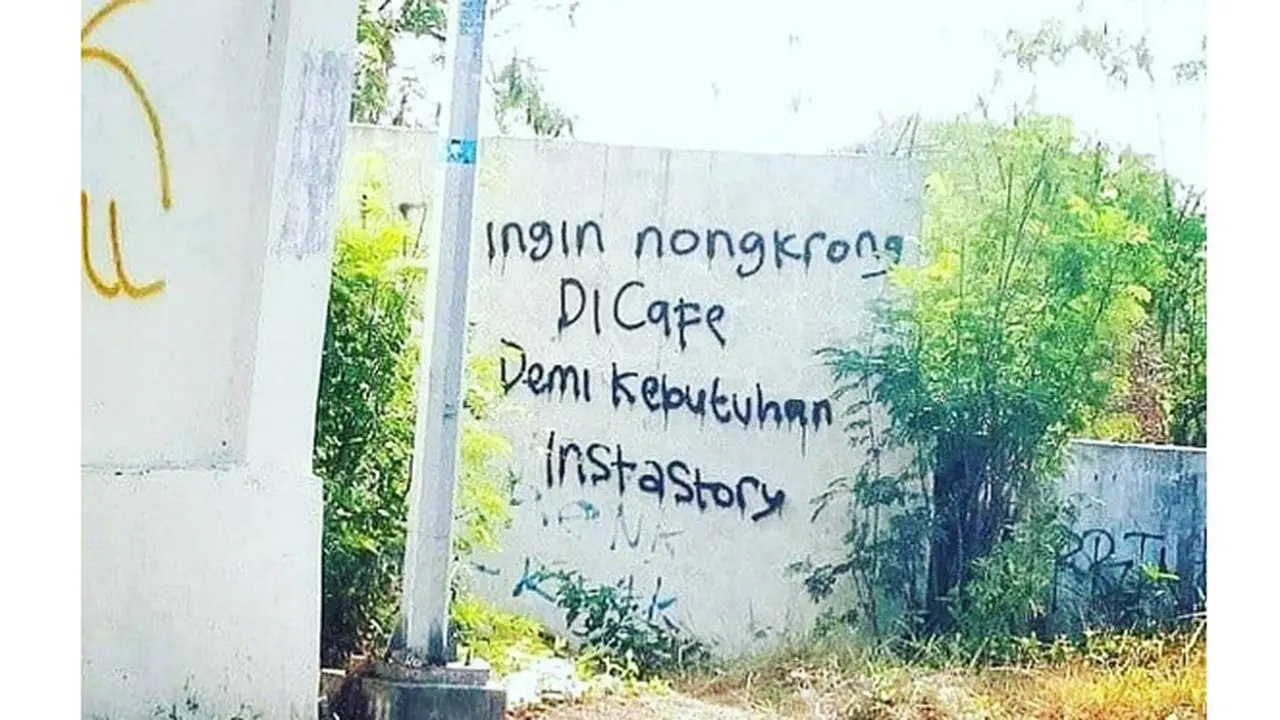 ingin nongkrong
Di Cafe
Demi Kebutuhan
instastory